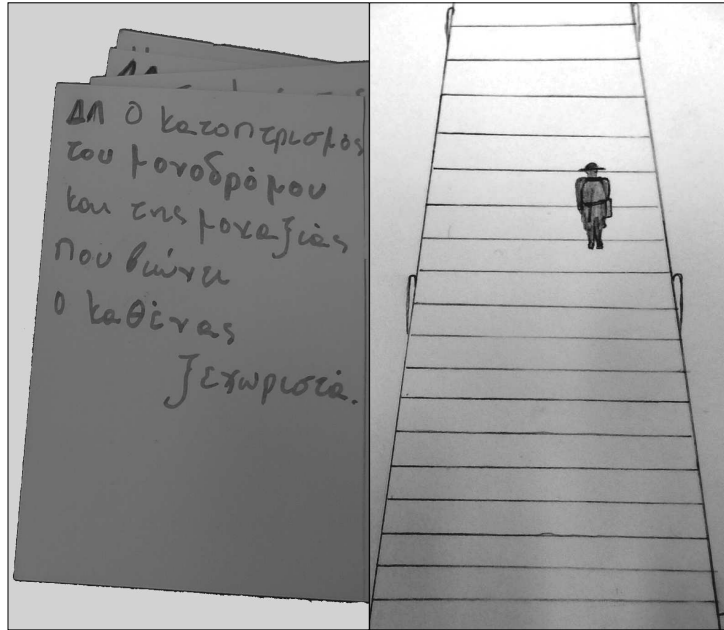 ΔΛ Ο κατοπτρισμός
του μονοδρόμου
και της μοναξιάς
που βιώνει
ο καθένας
ξεχωριστά.